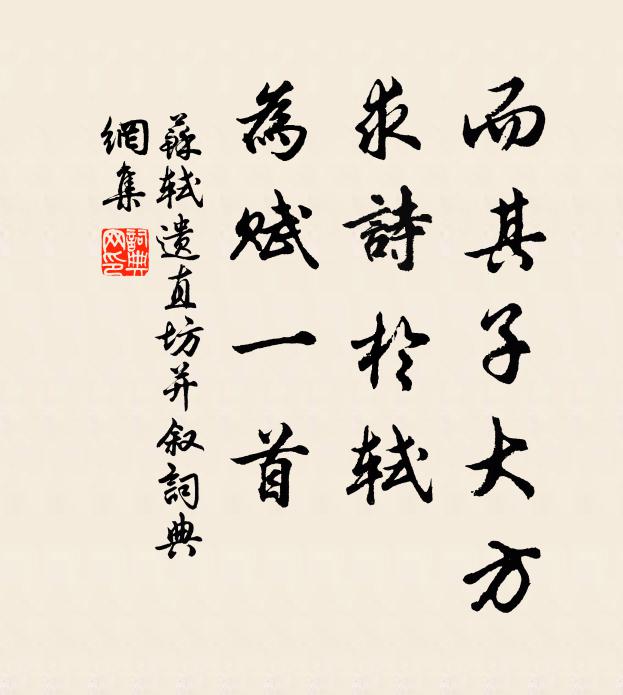 而其子大方
求詩於軾
為賦一首
蘇軾遗直坊并叙詞典
網集
詞典
网印